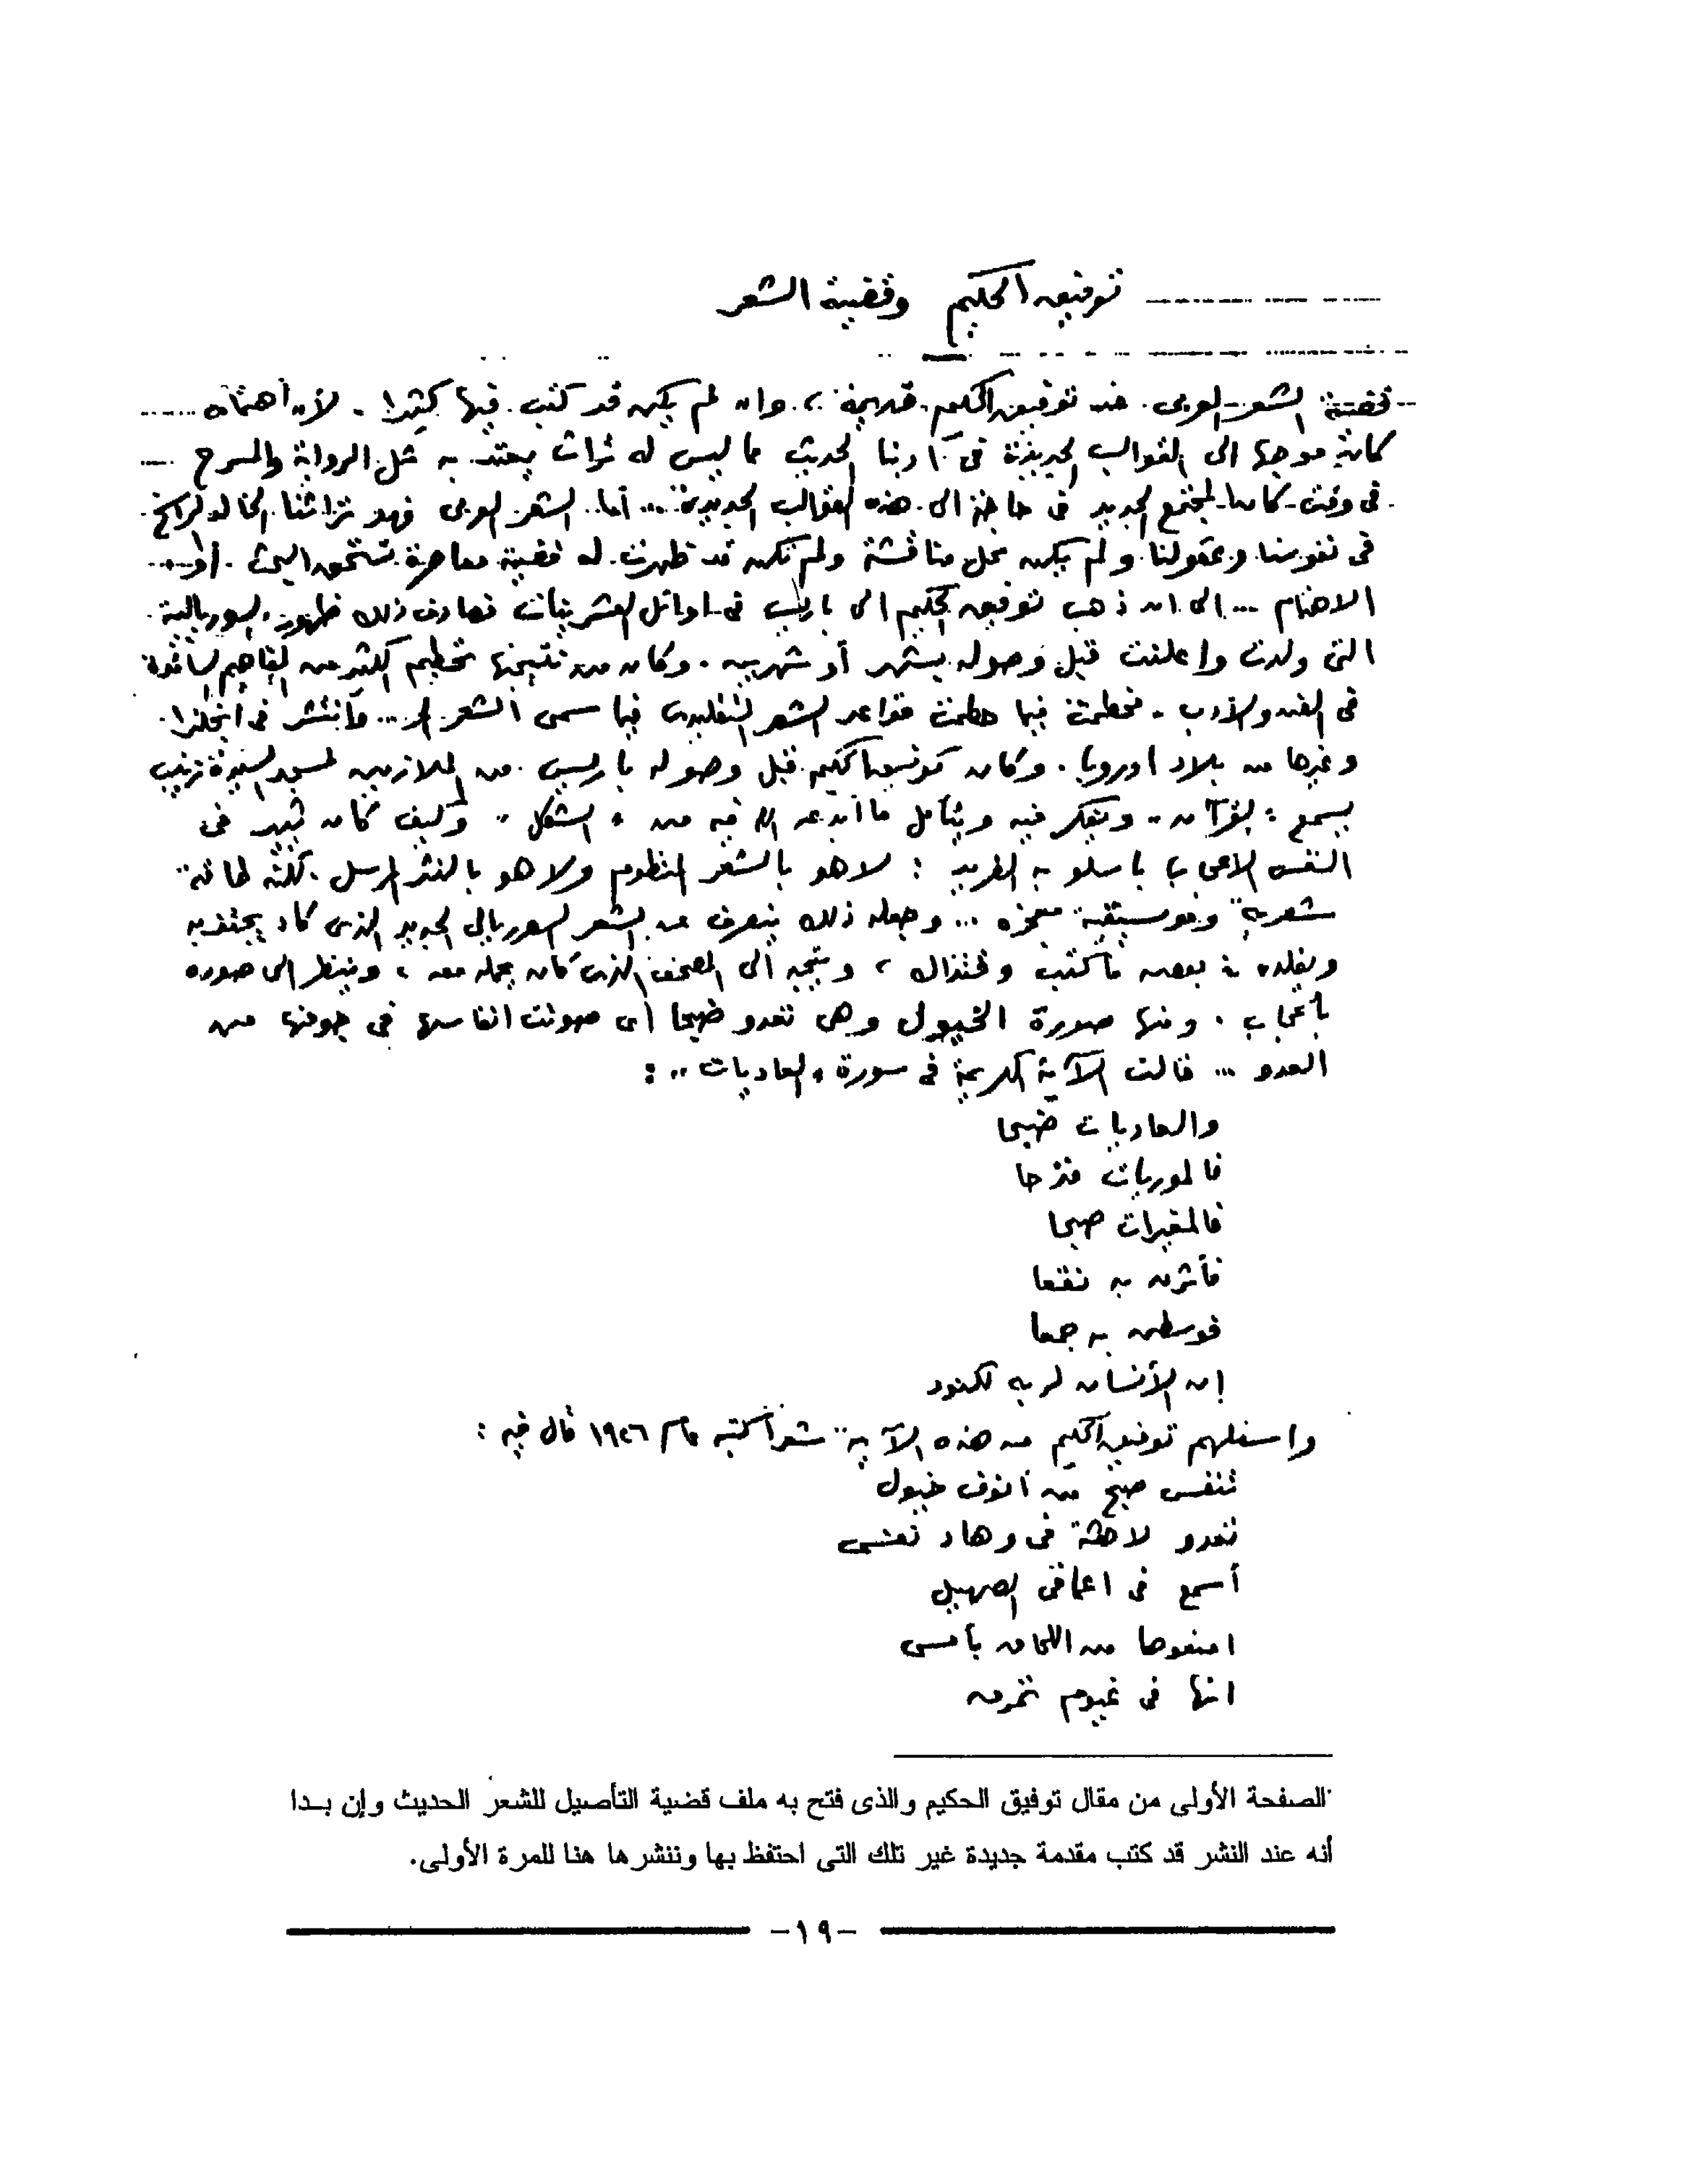 توفيق الحكيم وقضية الشعر
قضية الشعر العربى عند توفيق الحكيم قديمة ، وان لم يكن قد كتب فيها كثيرا . لأن اهتمامه
كان موجها الى القوالب الجديدة فى أدبنا الحديث مما ليس له تراث يعتد به مثل الرواية والمسرح
فى وقت كان المجتمع الجديد فى حاجة الى هذه القوالب الجديدة ... أما الشعر العربى فهو تراثنا الخالد الراسخ
فى نفوسنا وعقولنا ولم يكن محل مناقشة ولم تكن قد ظهرت له قضية معاصرة تستحق البحث . أو
الاهتمام ... الى ان ذهب توفيق الحكيم الى باريس فى اوائل العشرينات فصادف ذلك ظهور السوريالية
التى ولدت واعلنت قبل وصوله بشهر أو شهرين . وكان من نتيجتها تحطيم الكثير من المفاهيم السائدة
فى الفن والأدب . فحطمت فيما حطمت قواعد الشعر التقليدى فيما سمى الشعر الحر ... فانتشر فى انجلترا
وغيرها من بلاد اوروبا . وكان توفيق الحكيم قبل وصوله باريس من الملازمين لمسجد السيدة زينب
يسمع القرآن .. ويفكر فيه ويتأمل ما أبدعه الله فيه من " الشكل " وكيف كان يثير فى
النفس الاعجاب باسلوبه الفريد : لا هو بالشعر المنظوم ولا هو بالنثر المرسل . لكنه طاقة
شعرية وموسيقية معجزه ... وجعله ذلك ينصرف عن الشعر السوريالى الجديد الذى كاد يجتذبه
ويقلده فى بعض ما كتب وقتذاك ، ويتجه الى المصحف الذى كان يحمله معه ، وينظر الى صوره
باعجاب . ومنها صورة الخيول وهى تعدو ضبحا أى صوت انفاسها فى جوفها من
العدو ... قالت الآية الكريمة فى سورة " العاديات " :
والعاديات ضبحا
فالموريات قدحا
فالمغيرات صبحا
فأثرن به نقعا
فوسطن به جمعا
إن الأنسان لربه لكنود
واستلهم توفيق الحكيم من هذه الآية شعرا كتبه عام ١٩٢٦ قال فيه :
تنفس صبح من أنوف خيول
تعدو لاهثة فى وهاد نفسى
أسمع فى اعماقى الصهيل
امنعوها من اللحاق بأمسى
انها فى غيوم تمرق
الصفحة الأولى من مقال توفيق الحكيم والذى فتح به ملف قضية التأصيل للشعر الحديث وإن بـدا
أنه عند النشر قد كتب مقدمة جديدة غير تلك التى احتفظ بها وننشرها هنا للمرة الأولى.
-١٩-